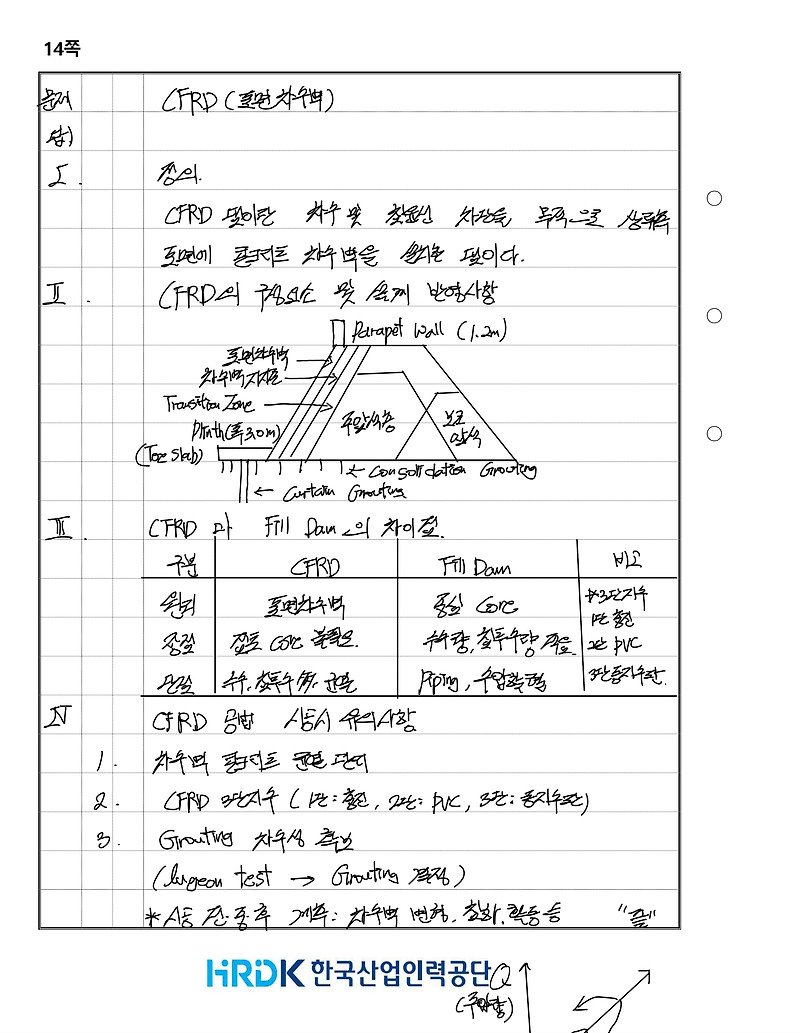 14쪽
문제 CFRD (표면차수벽)
답)
I. 정의.
CFRD 댐이란 차수 및 침윤선 차단을 목적으로 상류측
표면에 콘크리트 차수벽을 설치한 댐이다.
II. CFRD의 구성요소 및 설계 반영사항
Parapet Wall (1.2m)
표면차수벽
차수벽지지존
Transition Zone
Plinth (폭 3.0m)
(Toe Slab)
주암석존
보조
암석
Consolidation Grouting
Curtain Grouting
III. CFRD 과 Fill Dam의 차이점.
구분 CFRD Fill Dam 비고
원리 표면차수벽 중심 Core *3단지수
1단 충진
장점 점토 Core 불필요. 누수량, 침투수량 적음. 2단 PVC
단점 누수, 침투수 多, 균열 Piping, 수압할렬 3단동지수판.
IV CFRD 공법 시공시 유의사항
1. 차수벽 콘크리트 균열 관리
2. CFRD 3단지수 (1단: 충진, 2단: PVC, 3단: 동지수판)
3. Grouting 차수성 확보
(Lugeon test → Grouting 결정)
* 시공 전·중·후 계측: 차수벽 변형, 침하, 활동 등 "끝"
HRDK 한국산업인력공단
Q
(주입량)